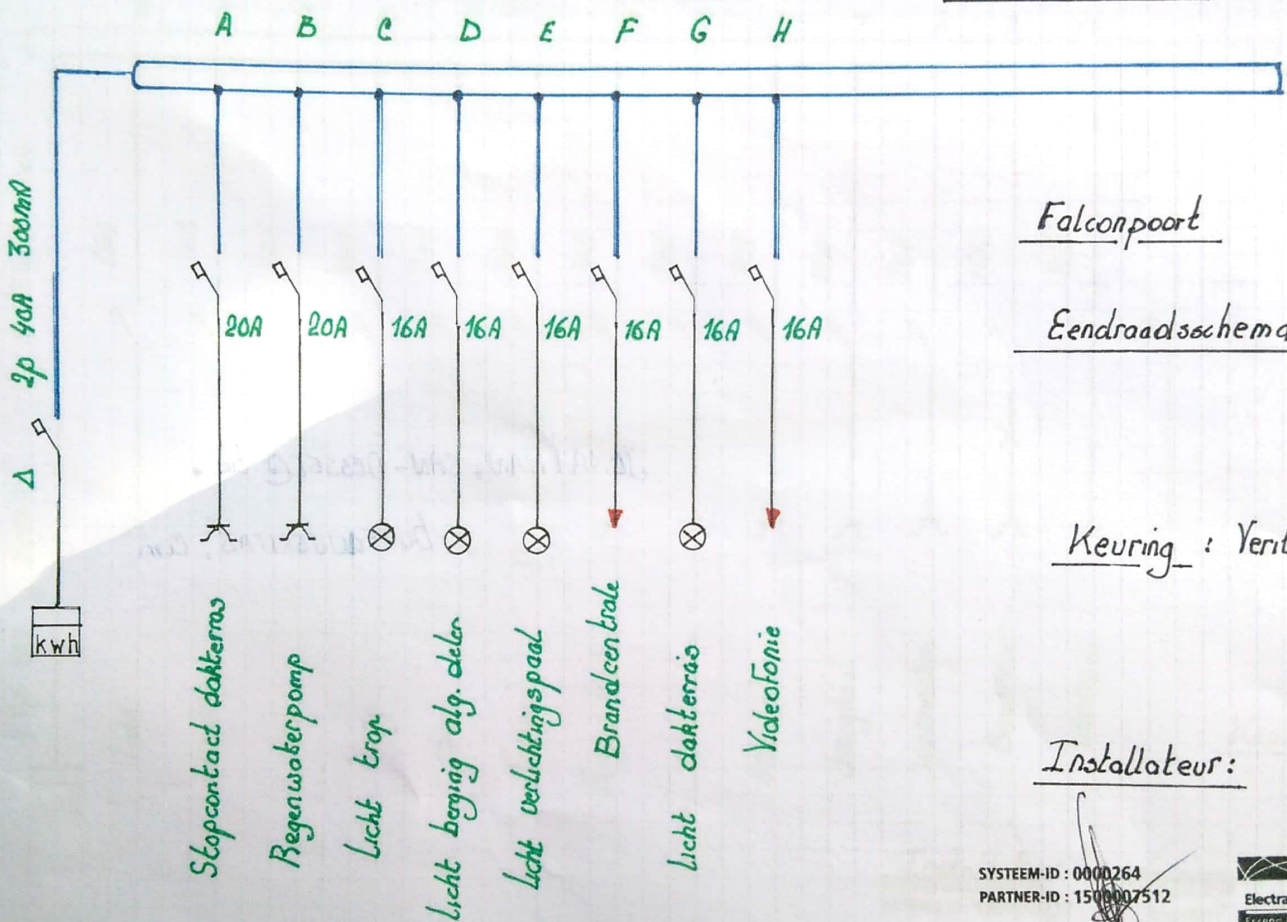 A B C D E F G H
Δ 2p 40A 300mA
20A 20A 16A 16A 16A 16A 16A 16A
kwh
Stopcontact dakterras
Regenwaterpomp
Licht trap
Licht berging alg. delen
Licht verlichtingspaal
Brandcentrale
Licht dakterras
Videofonie
Falconpoort
Eendraadsschema
Keuring : Verit
Installateur:
SYSTEEM-ID : 0000264
PARTNER-ID : 1500007512
Electra